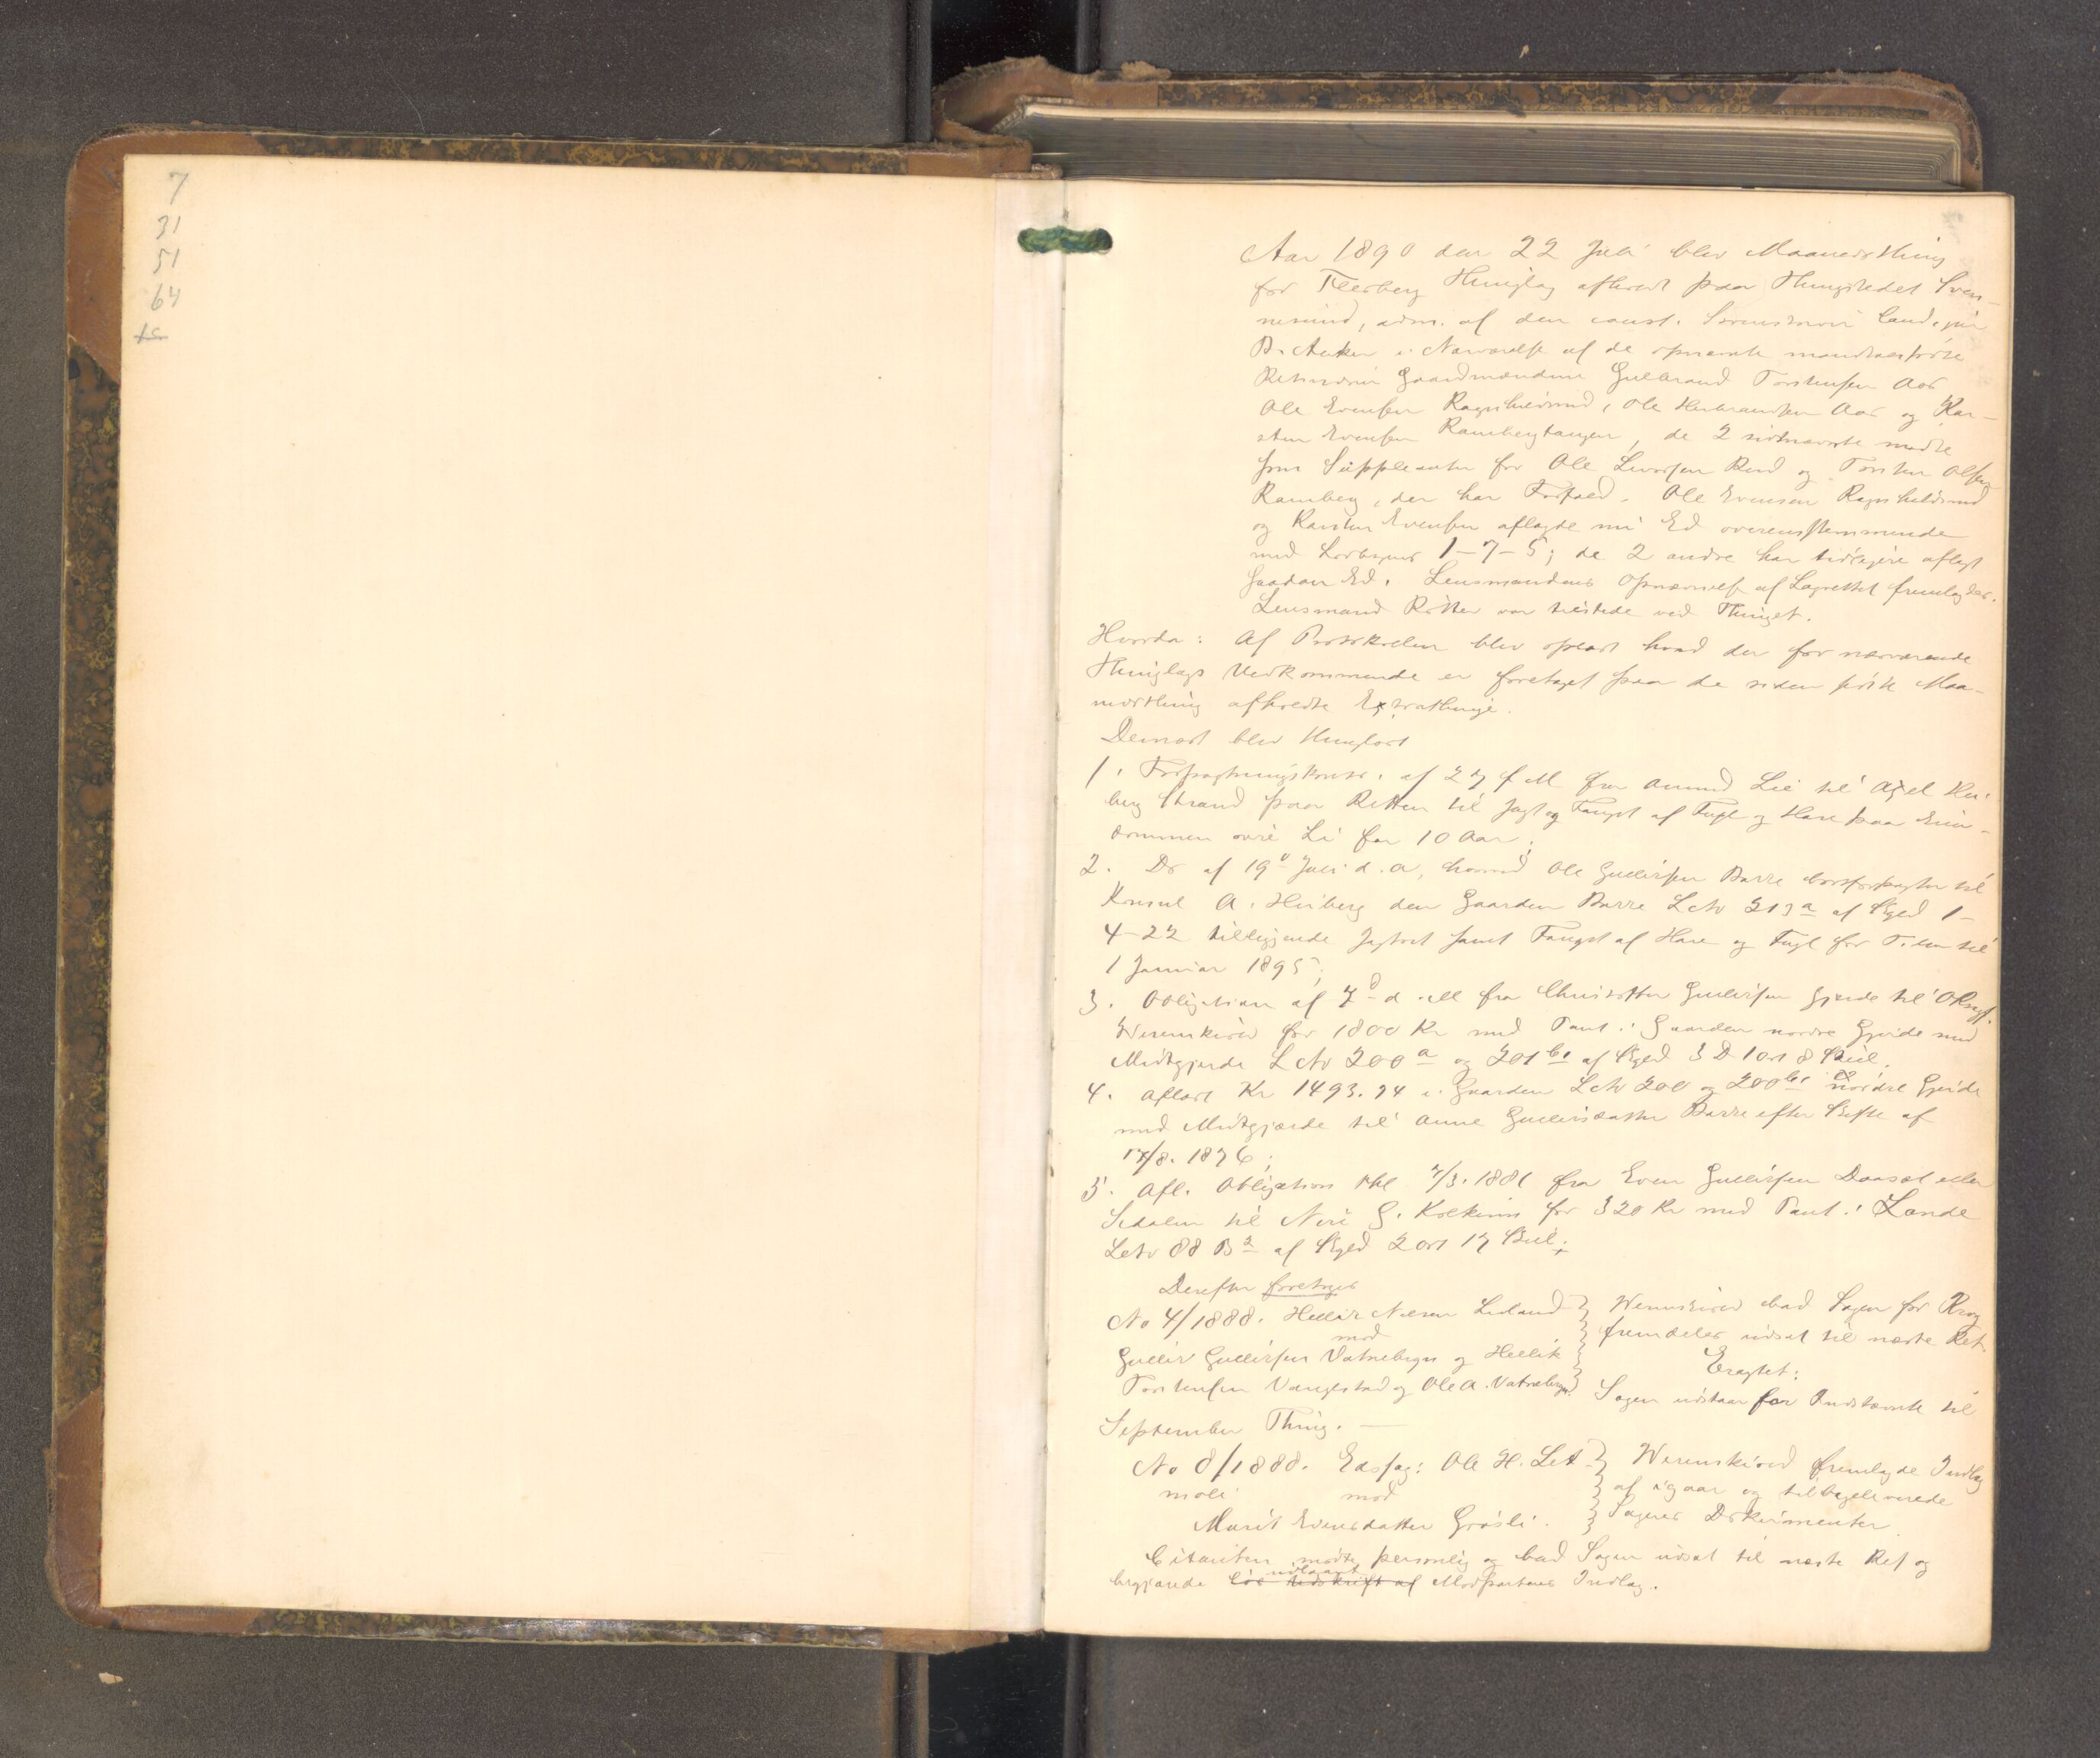 7
31
51
64
Aar 1890 den 22 Juli blev Maanedsthing
for Flesberg Thinglag afholdt paa Thingstedet Sven-
nesund, adm. af den const. Sorenskriver Cand. jur
B. Anker i Nærværelse af de opnævnte mændsforte
Retsvidner Gaardmændene Gulbrand Torstensen Aas
Ole Evensen Ragnhildrud, Ole Herbrandsen Aas og Kar-
sten Evensen Rambergtangen, de 2 sidstnævnte mødte
som Suppleanter for Ole Levorsen Rud og Torsten Olsen
Ramberg, der har Forfald. Ole Evensen Ragnhildrud
og Karsten Evensen aflagde nu Ed overensstemmende
med Lovbogens 1-7-5; de 2 andre har tidligere aflagt
saadan Ed. Lensmandens Opnævnelse af Lagrettet fremlagdes.
Lensmand Ritter var tilstede ved Thinget.
Hvorda: Af Protokollen blev oplæst hvad der for nærværende
Thinglags Vedkommende er foretaget paa de siden sidste Maa-
nedsthing afholdte Extrathinge.
Dernæst blev thinglæst
1. Forpagtningskontr. af 27 f M fra Amund Lie til Axel Hei-
berg Strand paa Retten til Jagt og Fangst af Fugl og Hare paa Eien-
dommen øvre Li for 10 Aar;
2. Do af 19d Juli d.a, hvorved Ole Gulliksen Barre bortforpagter til
Konsul A. Heiberg den Gaarden Barre L No 213a af Skyld 1-
4-22 tilliggende Jagtret samt Fangst af Hare og Fugl for Tiden til
1 Januar 1895;
3. Obligation af 7d d. M fra Christoffer Gulliksen Gjerde til O.Rsagf.
Werenskiold for 1800 Kr med Pant i Gaarden nordre Gjerde med
Midtgjerde L No 200a og 201b1 af Skyld 3 D 1 ort 8 Skil.
4. Aflæst Kr 1493.94 i Gaarden L No 200 og 200b1 nordre Gjerde
med Midtgjærde til Anne Gulliksdatter Barre efter Skifte af
17/8. 1876;
5. Afl. Obligation thl 7/3. 1881 fra Even Gulliksen Daaset eller
Sidalen til Niri G. Kolkinn for 320 Kr med Pant i Lande
L No 88 B2 af Skyld 2 ort 17 Skil;
Derefter foretoges
No 4/1888. Hellik Nilsen Lidand
mod
Gullik Gulliksen Vatnebryn og Hellik
Torstensen Vangestad og Ole A. Vatnebryn
Werenskiold bad Sagen for Krag
fremdeles udsat til næste Ret.
Eragtet:
Sagen udstaar for Indstævnte til
September Thing.
No 8/1888. Edssag: Ole H. Let-
moli mod
Marit Evensdatter Grøsli.
Werenskiold fremlagde Indlæg
af igaar og tilbageleverede
Sagens Dokumenter.
Citanten mødte personlig og bad Sagen udsat til næste Ret og
begjærede udlaant Modpartens Indlæg.